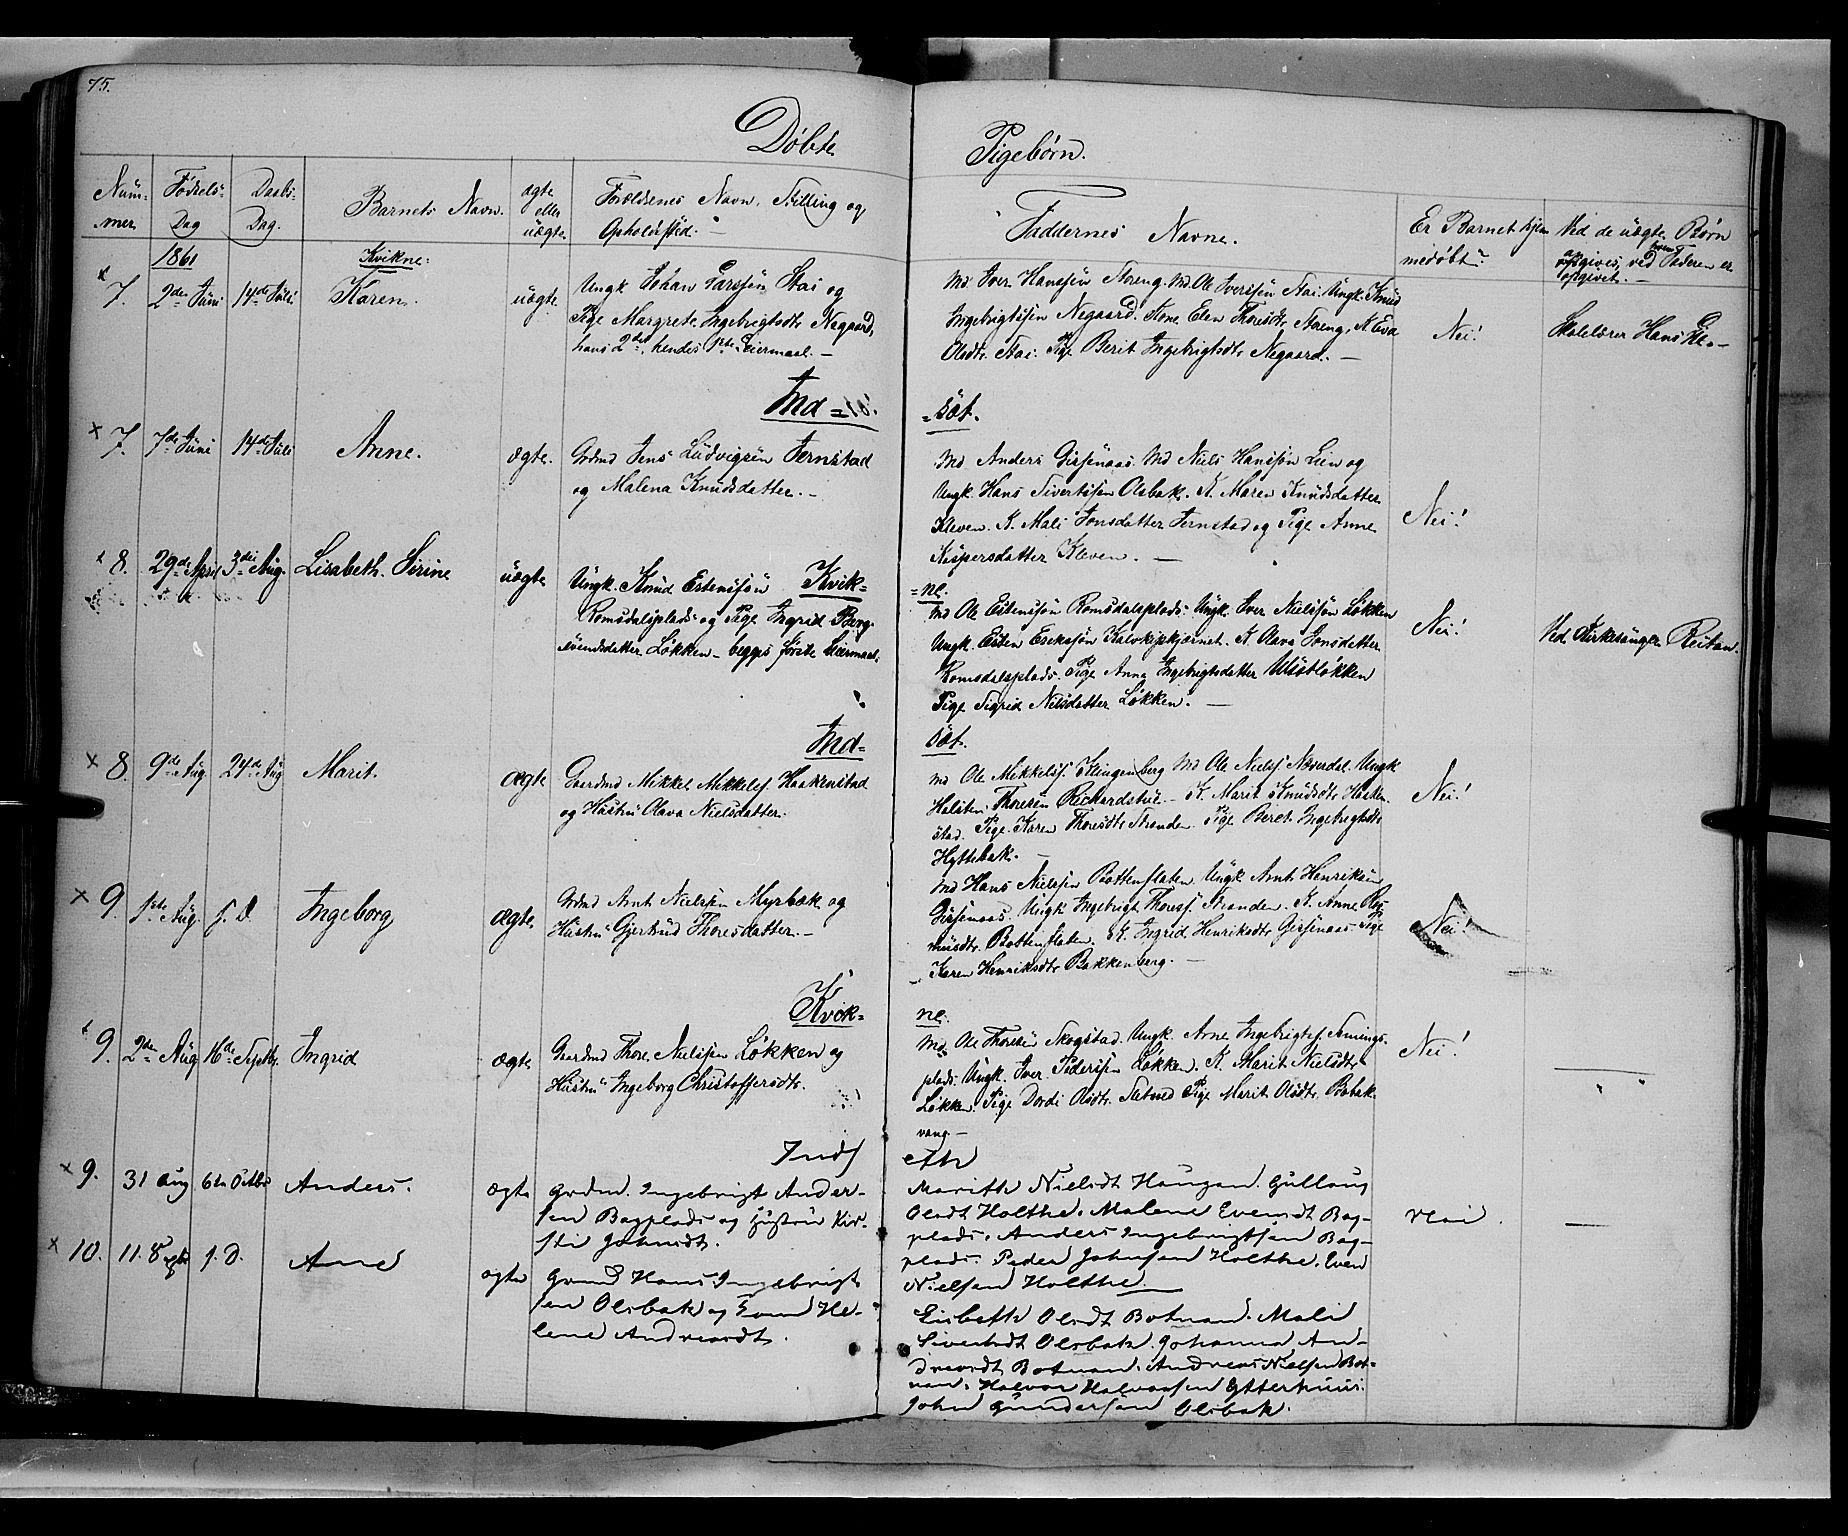 75.
Døbte Pigebørn.
Num-
mer
Fødsels-
Dag
Daabs-
Dag.
Barnets Navn.
ægte
eller
uægte
Forældrenes Navn, Stilling og
Opholdsted. -
Faddernes Navne.
Er Barnet hjem
medøbt?
Ved de uægte Børn
opgives, ved hvem Faderen er
opgivet. -
1861
Kvikne:
7. 2den Juni 14de Juli Karen. uægte
Ungk. Johan Larssøn Stai og
Pige Margrete Ingebrigtsdtr Negaard,
hans 2det, hendes 1ste Leiermaal. -
Md. Iver Hanssøn Storeng. Md. Ole Iverssøn Stai. Ungk. Knud
Ingebrigtssøn Negaard. Kone Elen Thoresdtr Storeng, K. Eva
Olsdtr. Stai. Pige Berit Ingebrigtsdtr Negaard. -
Nei!
Skolelærer Hans
Ind =
= sæt.
7. 7de Juni 14de Juli Anne. ægte.
Grdmd Jens Ludvigsen Jernstad
og Malena Knudsdatter. -
Md Anders Girsenaas. Md Niels Hanssøn Lien og
Ungk. Hans Sivertssøn Olsbak. K. Maren Knudsdatter
Kleven. K. Mali Jonsdatter Jernstad og Pige Anne
Kaspersdatter Kleven. -
Nei!
8. 29de April 3die Aug. Lisabeth Serine uægte
Kvik-
= ne.
Ungk. Knud Estenssøn
Romsdalsplads og Pige Ingrid Berg-
svendsdatter Løkken - begges første Leiermaal.
Md Ole Estenssøn Romsdalsplads. Ungk. Iver Nielssøn Løkken
Ungk. Esten Erekssøn Kalvkipkjærnet. K. Olava Jonsdatter
Romsdalsplads. Pige Anna Ingebrigtsdatter Utistløkken
Pige Sigrid Nilsdatter Løkken. -
Nei!
Ved Kirkesanger Reitan.
Ind-
sæt.
8. 9de Aug. 24de Aug Marit. Ægte
Gaardmd Mikkel Mikkels. Haakenstad
og Hustru Olava Nielsdatter.
Md Ole Mikkels. Klingenberg Md Ole Niels. Næverdal. Ungk
Halsten Thoresen Rickardstrø. - K. Marit Knudsdtr Haaken-
stad. Pige Karen Thoresdtr Stranden. Pige Beret Ingebrigtsdtr
Hyttebak. -
Nei!
9. 1ste Aug. s. D. Ingeborg Ægte
Grdmd Arnt Nielsen Myrbæk og
Hustru Gjertrud Thoresdatter. -
Md Hans Nielsen Bottenflaten. Ungk Arnt Henriksen
Girsenaas. Ungk Ingebrigt Thores. Stranden. K. Anne Ras-
musdtr. Bottenflaten. K. Ingrid Henriksdtr Girsenaas. Pige
Karen Henriksdtr Bakkenberg. -
Nei!
Kvik-
ne.
9. 2den Aug 16de Septbr. Ingrid ægte
Gaardmd Thore Nielsen Løkken og
Hustru Ingeborg Christoffersdtr.
Md. Ole Thoresen Skogstad. Ungk. Arne Ingebrigts.
plads. Ungk. Iver Pedersen Løkken. K. Marit Nielsdtr
Løkken. Pige Dordi Olsdtr. Sætmd Pige Marit Olsdtr. Bobak-
vang. -
Nei!
Inds
eth
9. 31 Aug 6te Octbr Anders. ægte
Grdmd. Ingebrigt Ander-
sen Bagplads og Hustru Kir-
sti Johnsdt.
Marith Nielsdt Haugan. Gullaug
Olsdt Holthe. Malene Evensdt Bag-
plads. Anders Ingebrigtsen Bag-
plads. Peder Johnsen Holthe. Even
Nielsen Holthe.
Nei.
10. 11. Sept s. D. Ane ægte
Grdmd Hans Ingebrigt
sen Olsbak og Kone He-
lene Andreasdt.
Lisbeth Olsdt Botnan. Mali
Sivertsdt Olsbak. Johanna An-
dreasdt Botnan. Andreas Nielsen Bot-
nan. Halvor Halvorsen Ytterhuus.
John Gundersen Olsbak.